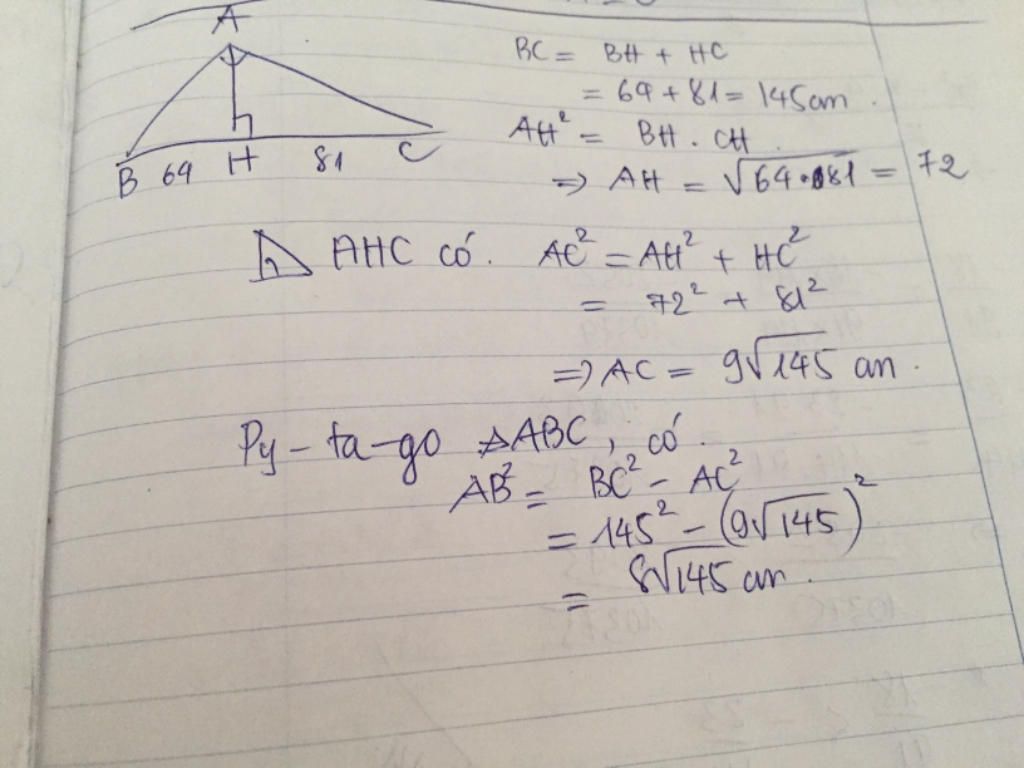 A
B 64 H 81 C
BC = BH + HC
= 64 + 81 = 145cm.
AH² = BH . CH.
=> AH = √64.81 = 72
AHC có. AC² = AH² + HC²
= 72² + 81²
=> AC = 9√145 cm.
Py-ta-go ΔABC, có.
AB² = BC² - AC²
= 145² - (9√145)²
= 8√145 cm.